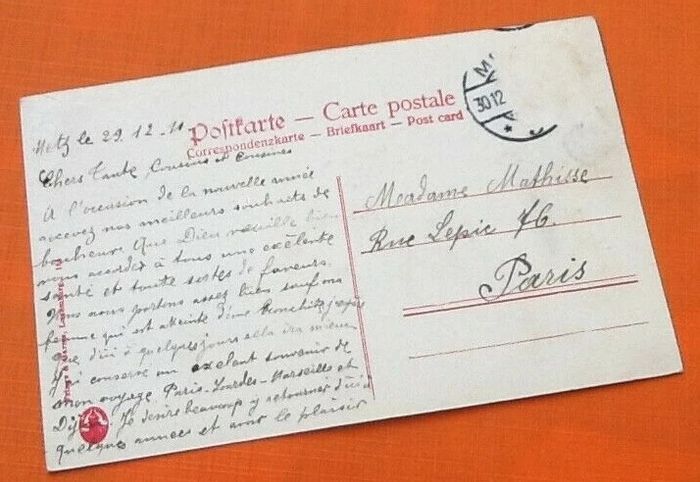 Postkarte — Carte postale
Correspondenzkarte — Briefkaart — Post card
M
30 12
Metz le 29. 12. 10
Chers Tante, Cousins et Cousines
A l'occasion de la nouvelle année
recevez nos meilleurs souhaits de
bonheure Que Dieu veuille bien
vous accorder à tous une exélente
santé et toute sortes de faveurs.
Nous nous portons assez bien sauf ma
femme qui est atteinte d'une bronchite j'espère
que d'ici à quelques jours ella ira mieux
J'ai conservé un exelant souvenir de
mon voyage Paris-Lourdes-Marseille et
Dijon. Je desire beaucoup y retourner d'ici
quelques années et avoir le plaisir
Meadame Mathisse
Rue Lepic 76.
Paris